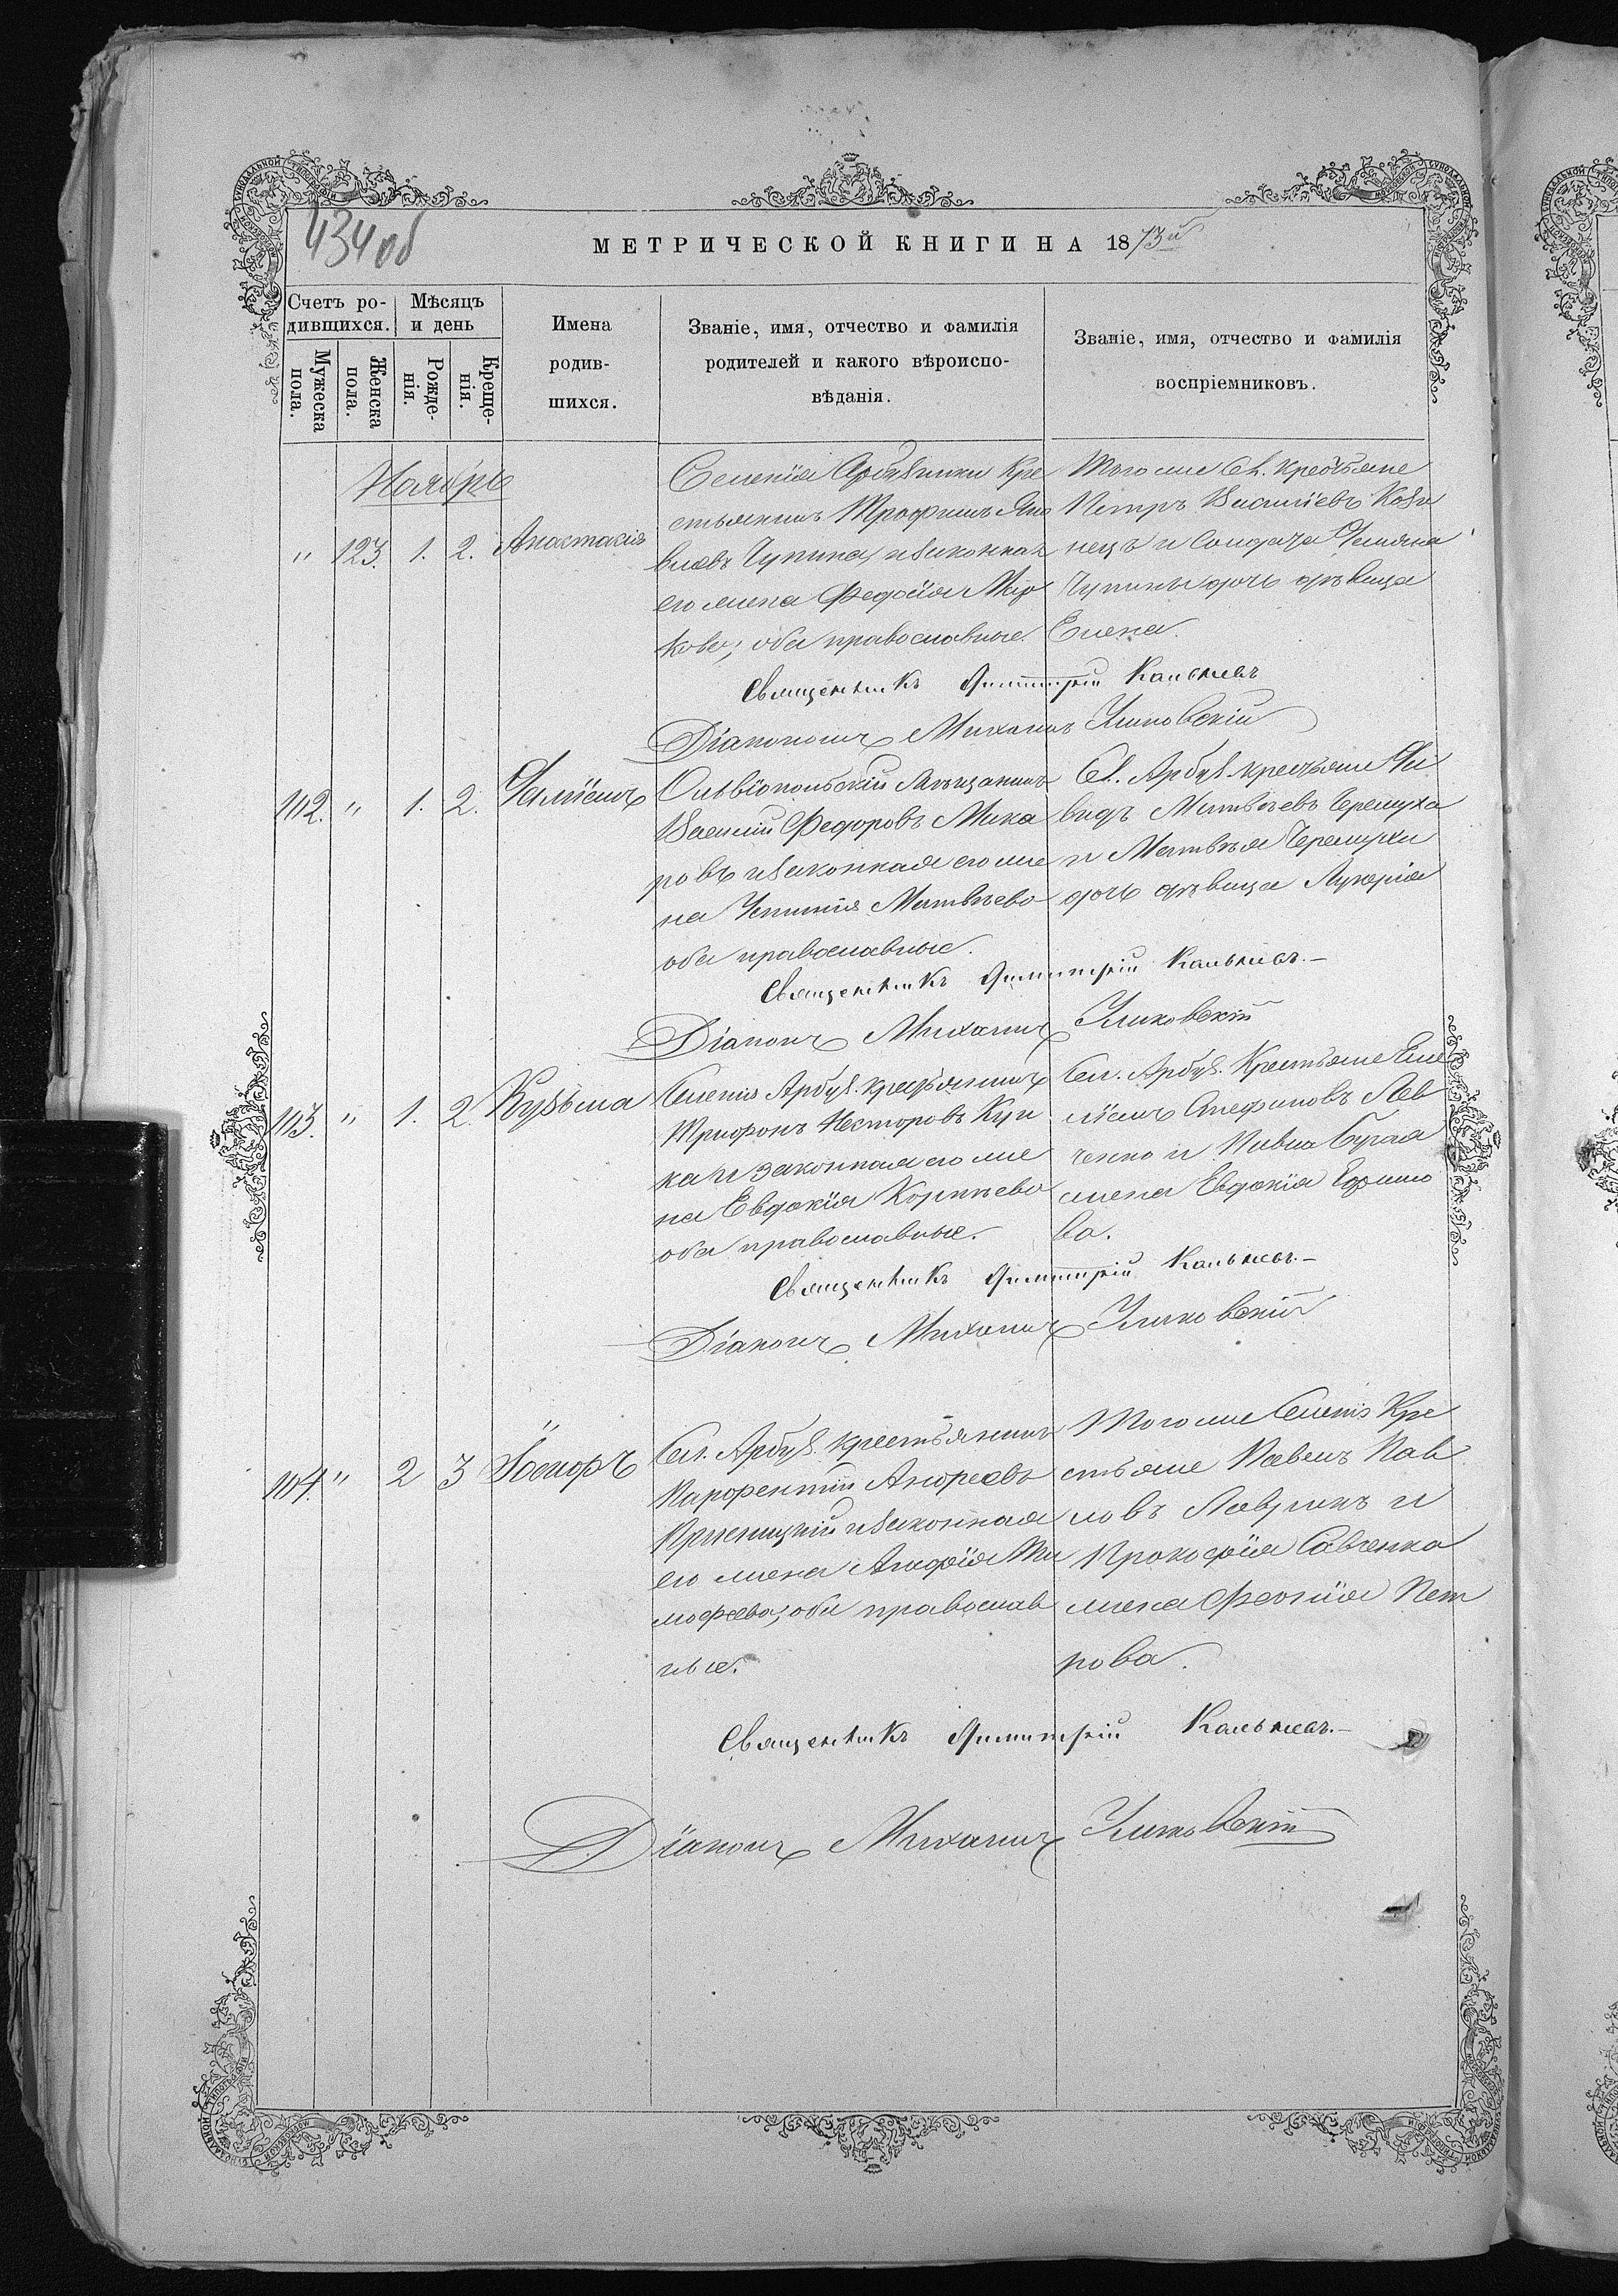 434 об
МЕТРИЧЕСКОЙ КНИГИ НА 1873й
Счетъ ро-
дившихся.
Мѣсяцъ
и день
Мужеска
пола.
Женска
пола.
Рожде-
нія.
Креще-
нія.
Имена
родив-
шихся.
Званіе, имя, отчество и фамилія
родителей и какого вѣроиспо-
вѣданія.
Званіе, имя, отчество и фамилія
воспріемниковъ.
Ноябрь
" 123. 1. 2. Анастасія
Селенія Арбузинки кре
стьянинъ Трофимъ Яко
влевъ Чупина, и законная
его жена Федосія Мар
кова; оба православные.
Того же Сел. крестьяне
Петръ Васильевъ Кози
нецъ и Солдата
Чупины дочь дѣвица
Елена.
Священникъ Димитрій Кальневъ
Діаконъ Михаилъ Улиновскій
112. " 1. 2.
Ольвіопольскій мѣщанинъ
Василій Федоровъ Мака
ровъ и законная его же
на Матвѣева
оба православные.
Сел. Арбуз. крестьяне Да
видъ Матвѣевъ Черемуха
и Матвѣя Черемухи
дочь дѣвица Лукерія
Священникъ Димитрій Кальневъ.-
Діаконъ Михаилъ Улиновскій
113. " 1. 2. Кузьма
Селенія Арбуз. крестьянинъ
Трифонъ Несторовъ Куч
ка и законная его же
на Евдокія Корнѣева
оба православные.
Сел. Арбуз. Крестьяне Еме
ліанъ Стефановъ Лев
ченко и Павла Бугая
жена Евдокія Ефимо
ва.
Священникъ Димитрій Кальневъ.-
Діаконъ Михаилъ Улиновскій
114. " 2 3
Сел. Арбуз. крестьянинъ
Парфентій Андреевъ
и законная
его жена Агафія Ти
мофеева; оба православ
ные.
Того же Селенія Кре
стьяне Павелъ Пав
ловъ Лавринъ и
Прокофія Савенка
жена Феонія Пет
рова.
Священникъ Димитрій Кальневъ.-
Діаконъ Михаилъ Улиновскій